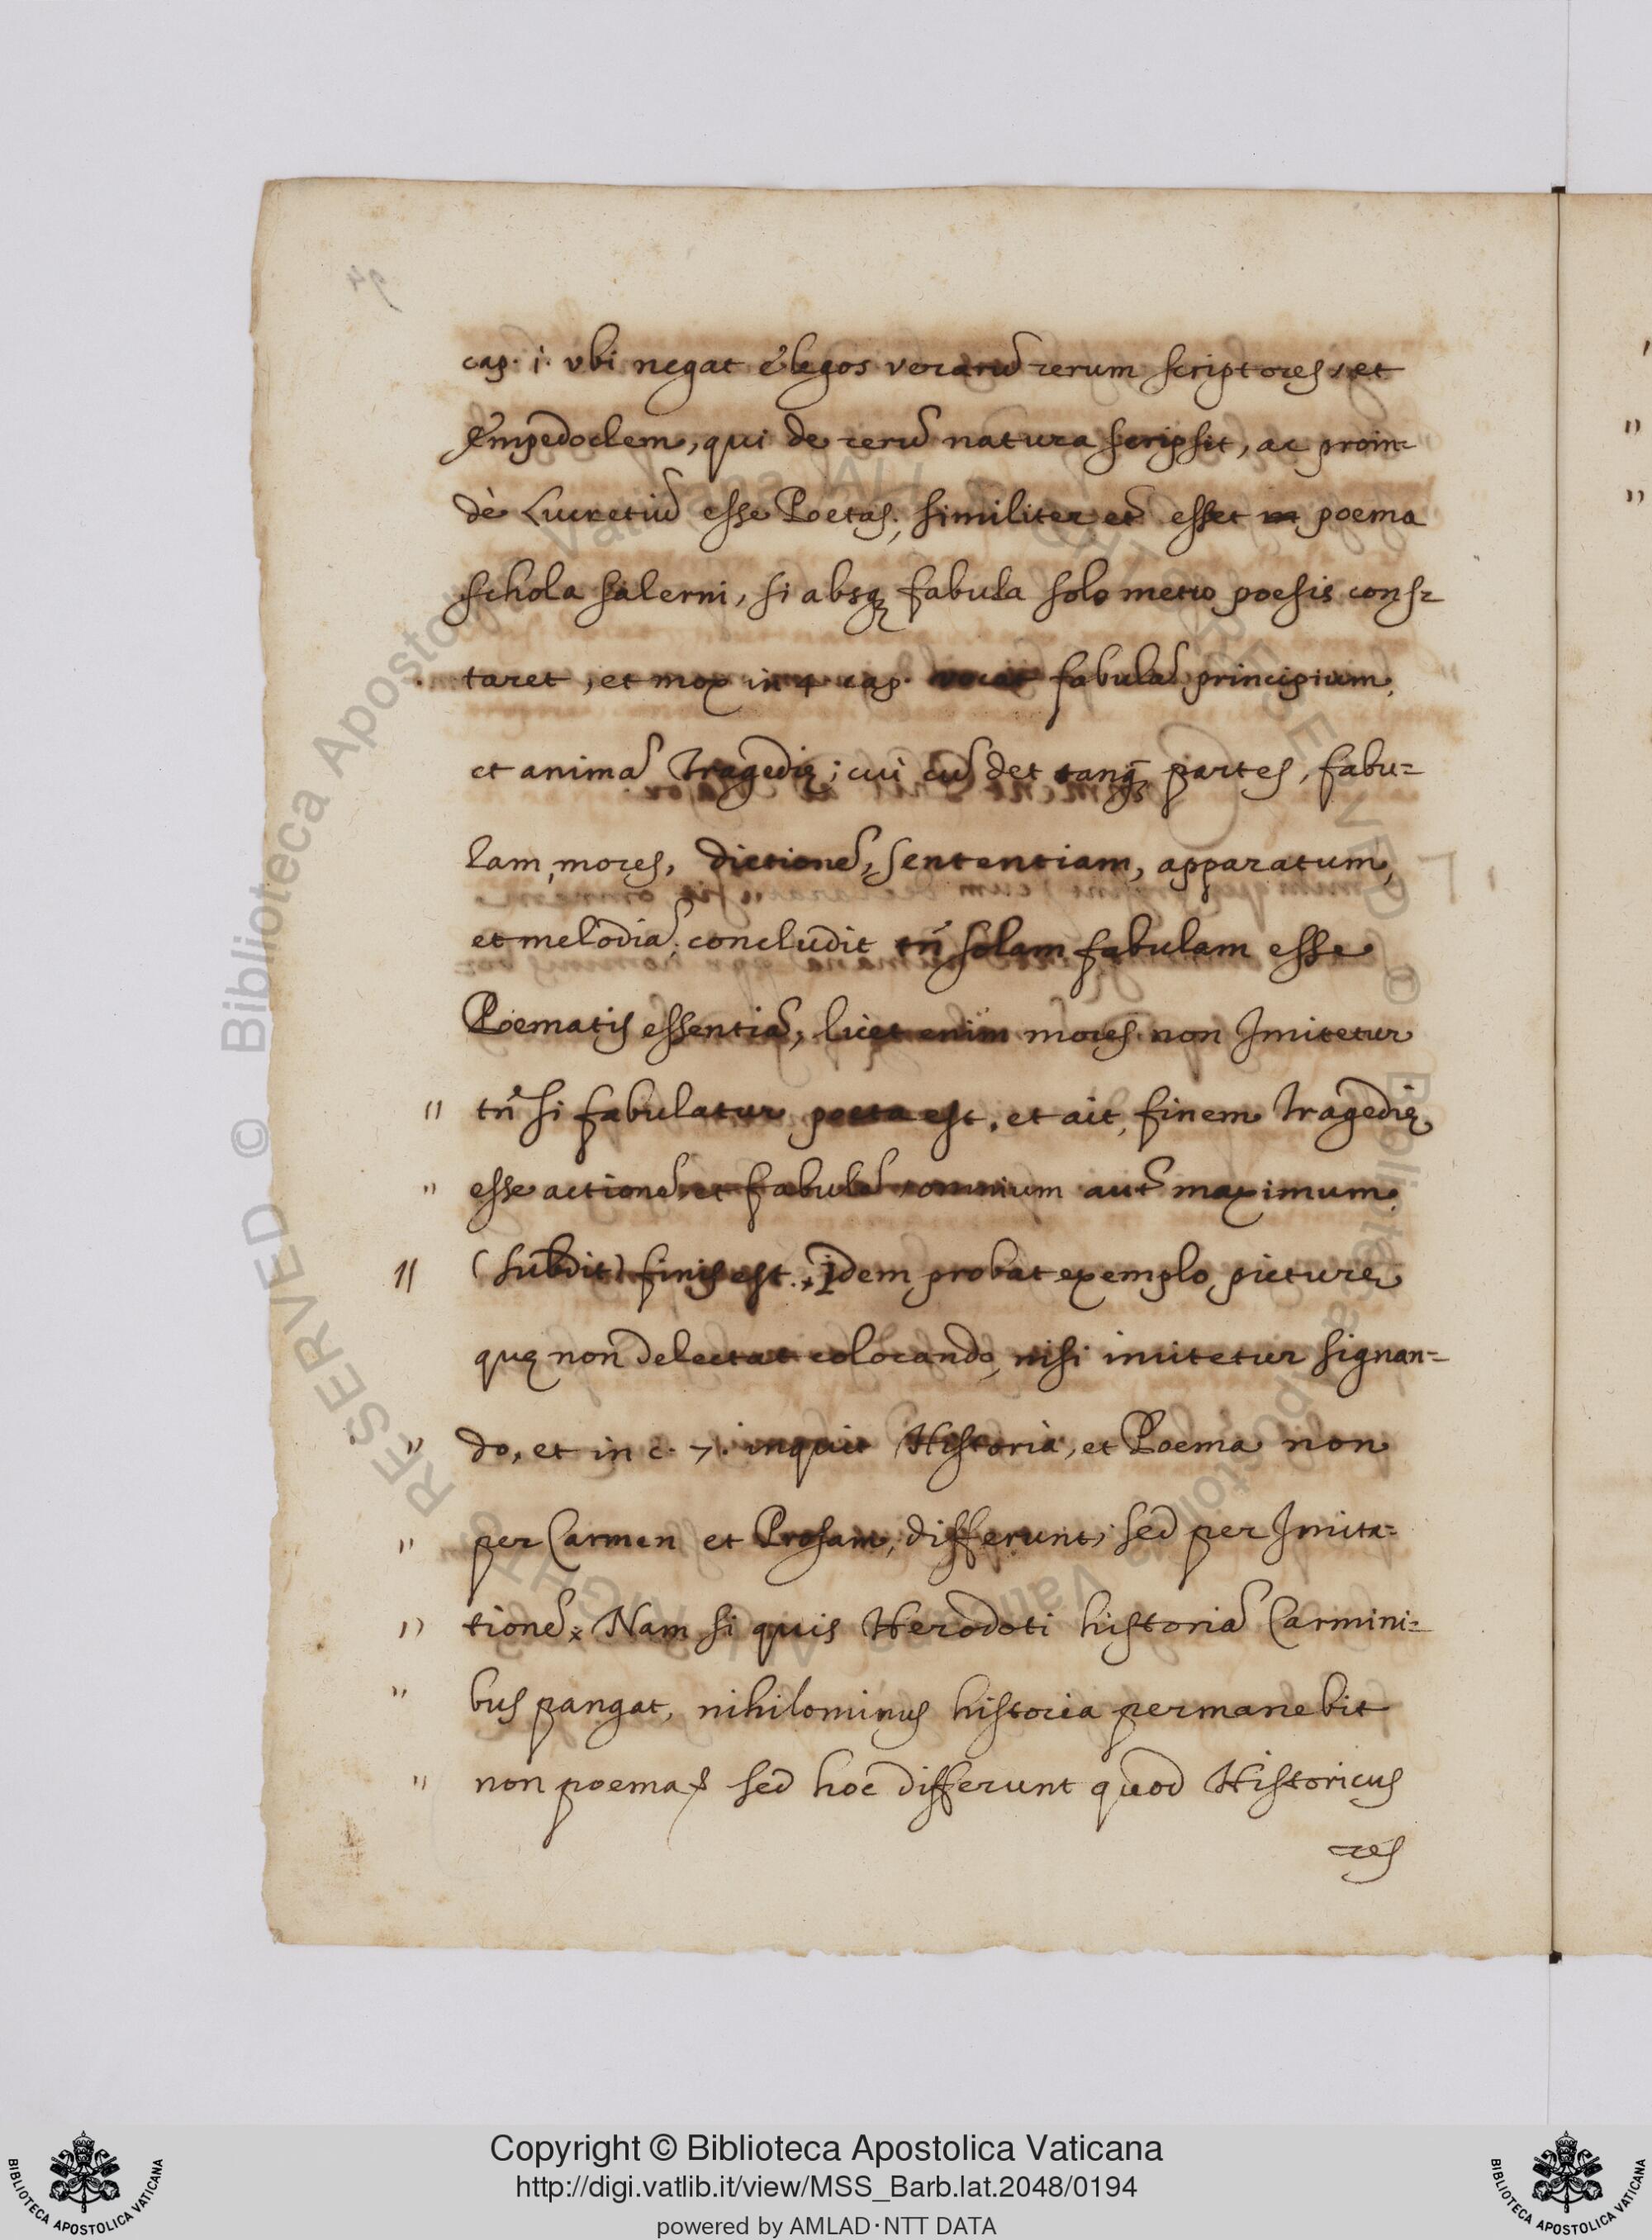 cap. i. vbi negat elegos verarũ rerum scriptores, et
Empedoclem, qui de rerũ natura scripsit, ac proin=
dè Lucretiũ esse Poetas; similiter et̃ esset poema
schola salerni, si absq; fabula solo metro poesis cons=
taret, et mox in 4 cap. vocat fabulã principium
et animã Tragedię; cui cũ det tanq̃ partes, fabu=
lam, mores, dictionẽ, sententiam, apparatum,
et melodiã; concludit tñ solam fabulam esse
Poematis essentiã, licet enim mores non Imitetur
" tñ si fabulatur poeta est, et ait, finem Tragedię
" esse actionẽ, et fabulã, omnium aut̃ maximum
" (subdit) finis est. Idem probat exemplo picture
quę non delectat colorando, nisi imitetur signan=
" do, et in c. 7. inquit Historia, et Poema non
" per Carmen et Prosam, differunt, sed per Imita=
" tionẽ. Nam si quis Herodoti historiã Carmini=
" bus pangat, nihilominus historia permanebit
" non poema, sed hoc differunt quod Historicus
res
Copyright © Biblioteca Apostolica Vaticana
http://digi.vatlib.it/view/MSS_Barb.lat.2048/0194
powered by AMLAD·NTT DATA